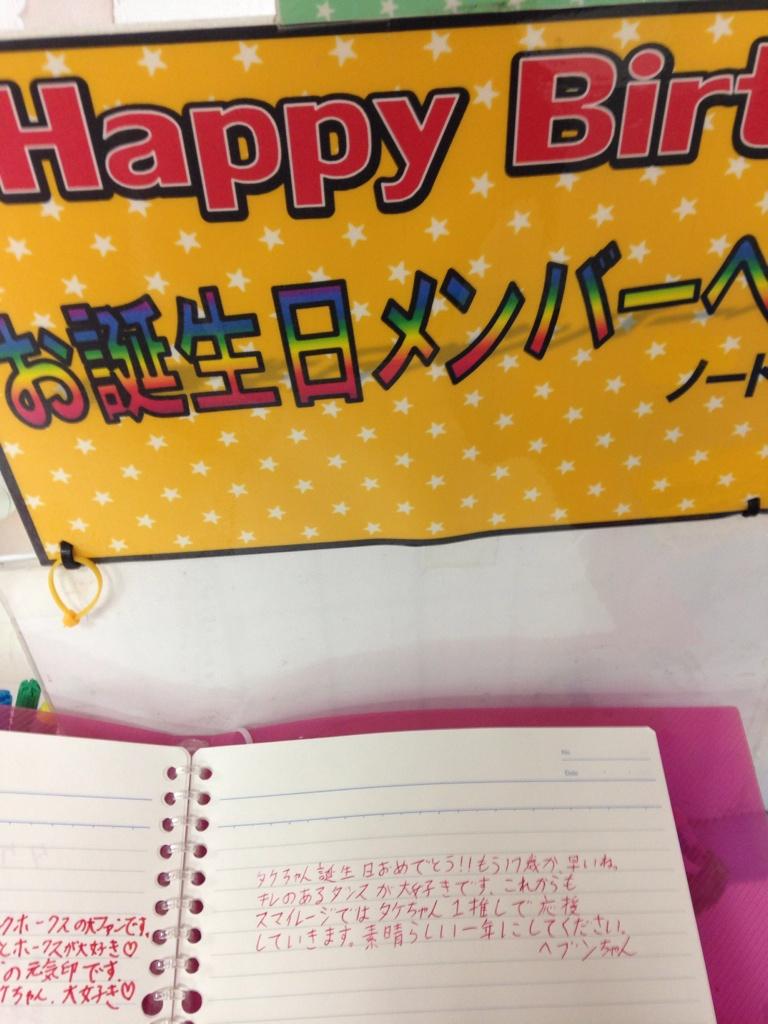 Happy Birt
お誕生日メンバーへ
ノート
No.
Date
タケちゃん誕生日おめでとう!!もう17歳か早いね。
キレのあるダンスが大好きです。これからも
スマイレージではタケちゃん1推しで応援
していきます。素晴らしい一年にしてください。
ヘブンちゃん
クホークスの大ファンです。
とホークスが大好き♡
の元気印です。
ケちゃん、大好き♡